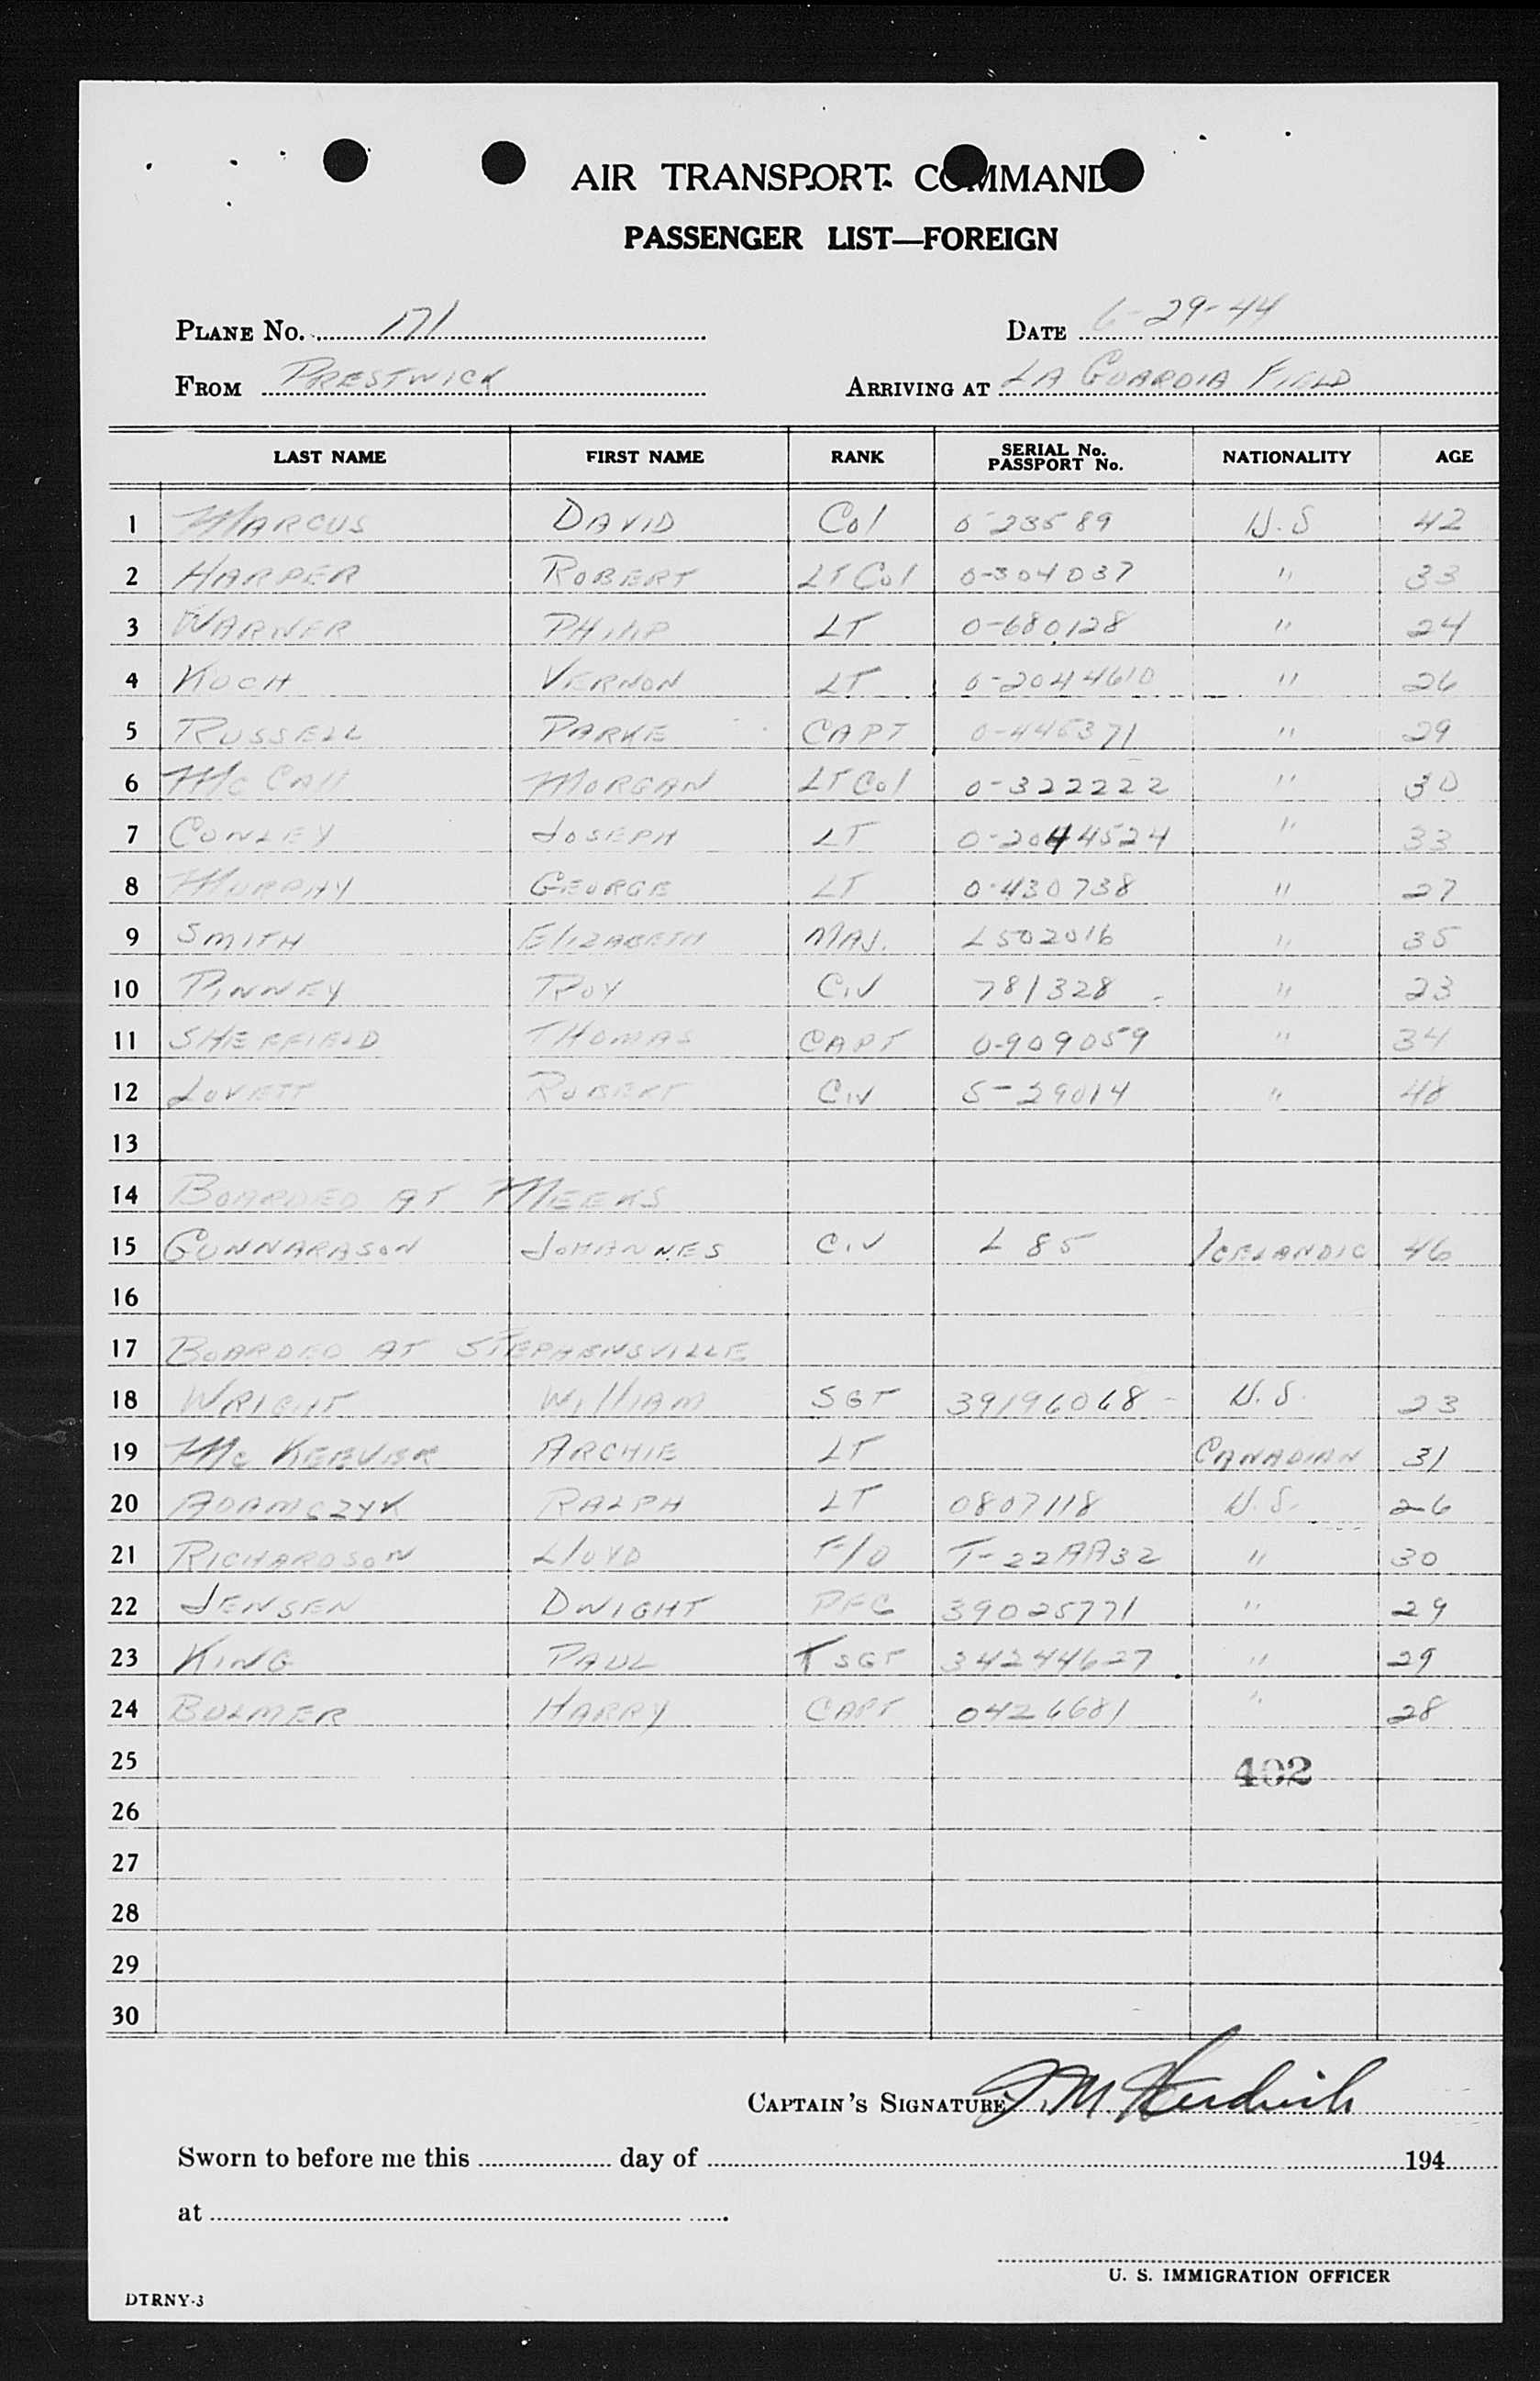 AIR TRANSPORT COMMAND
PASSENGER LIST—FOREIGN
PLANE No. 171 DATE 6-29-44
FROM PRESTWICK ARRIVING AT LA GUARDIA FIELD
LAST NAME FIRST NAME RANK SERIAL No. PASSPORT No. NATIONALITY AGE
1 MARCUS DAVID Col 0-23589 U.S 42
2 HARPER ROBERT LT Col 0-304037 " 33
3 WARNER PHILIP LT 0-680128 " 24
4 KOCH VERNON LT 0-2044610 " 26
5 RUSSELL PARKE CAPT 0-445371 " 29
6 Mc Call MORGAN LT Col 0-322222 " 30
7 CONLEY JOSEPH LT 0-2044524 " 33
8 MURPHY GEORGE LT 0-430738 " 27
9 SMITH ElizABETH MAJ. L502016 " 35
10 PINNEY ROY Civ 781328 " 23
11 SHEFFIELD THOMAS CAPT 0-909059 " 34
12 LOVETT ROBERT Civ S-29014 " 48
13
14 BOARDED AT MEEKS
15 GUNNARASON JOHANNES Civ L 85 ICELANDIC 46
16
17 BOARDED AT STEPHENSVILLE
18 WRIGHT WilliAM SGT 39196068 U.S. 23
19 Mc ARCHIE LT CANADIAN 31
20 ADAMCZYK RALPH LT 0807118 U.S. 26
21 RICHARDSON LloYD F/O " 30
22 JENSEN DWIGHT PFC 39025771 " 29
23 KING PAUL T SGT 34244627 " 29
24 BULMER HARRY CAPT 0426681 " 28
25 402
26
27
28
29
30
CAPTAIN'S SIGNATURE
Sworn to before me this day of 194
at
U. S. IMMIGRATION OFFICER
DTRNY-3